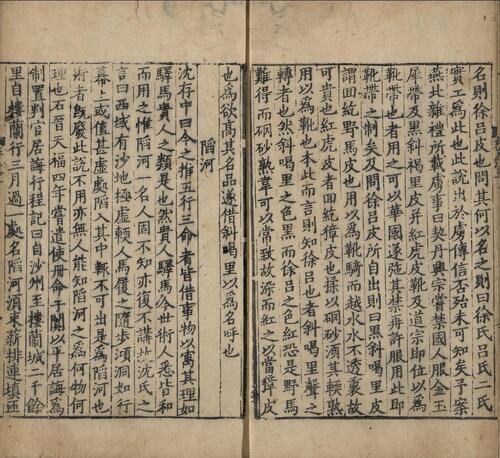 名則徐呂皮也問其何以名之則曰徐氏呂氏二氏
實工為此也此說出於虜傳信否殆未可知矣予案
燕北雜禮所載虜事曰契丹興宗嘗禁國人服金玉
犀帶及黑斜褐里皮并紅虎皮靴及道宗即位以為
靴帶也者用之可以華國遂弛其禁再許服用此即
靴帶之制矣及問徐呂皮所自出則曰黑斜喝里皮
謂回紇野馬皮也用以為靴騎而越水水不透裏故
可貴也紅虎皮者回紇獐皮也揉以硇砂須其輭熟
用以為靴也本此而言則知徐呂也者斜喝里聲之
轉者也然斜喝里之色黑而徐呂之色紅恐是野馬
難得而硇砂熟韋可以常致故染而紅之以當獐皮
也為欲高其名品遂借斜喝里以為名呼也
陷河
沈存中曰今之推五行三命者皆借事物以寓其理如
驛馬貴人之類是也然貴人驛馬今世術人悉皆和
而用之惟陷河一名人固不知亦復不講沈氏之
言曰西域有沙地極虛輭人馬履之隨步澒洞如行
幕上或值甚虛處陷入其中輙不可出是為陷河也
術者既廢此說不用亦無人能知陷河之為何物何
理也石晉天福四年嘗遣使冊命于闐以平居誨為
制置判官居誨行程記曰自沙州至樓蘭城二千餘
里自樓蘭行三月過一處名陷河須束薪排連填匝